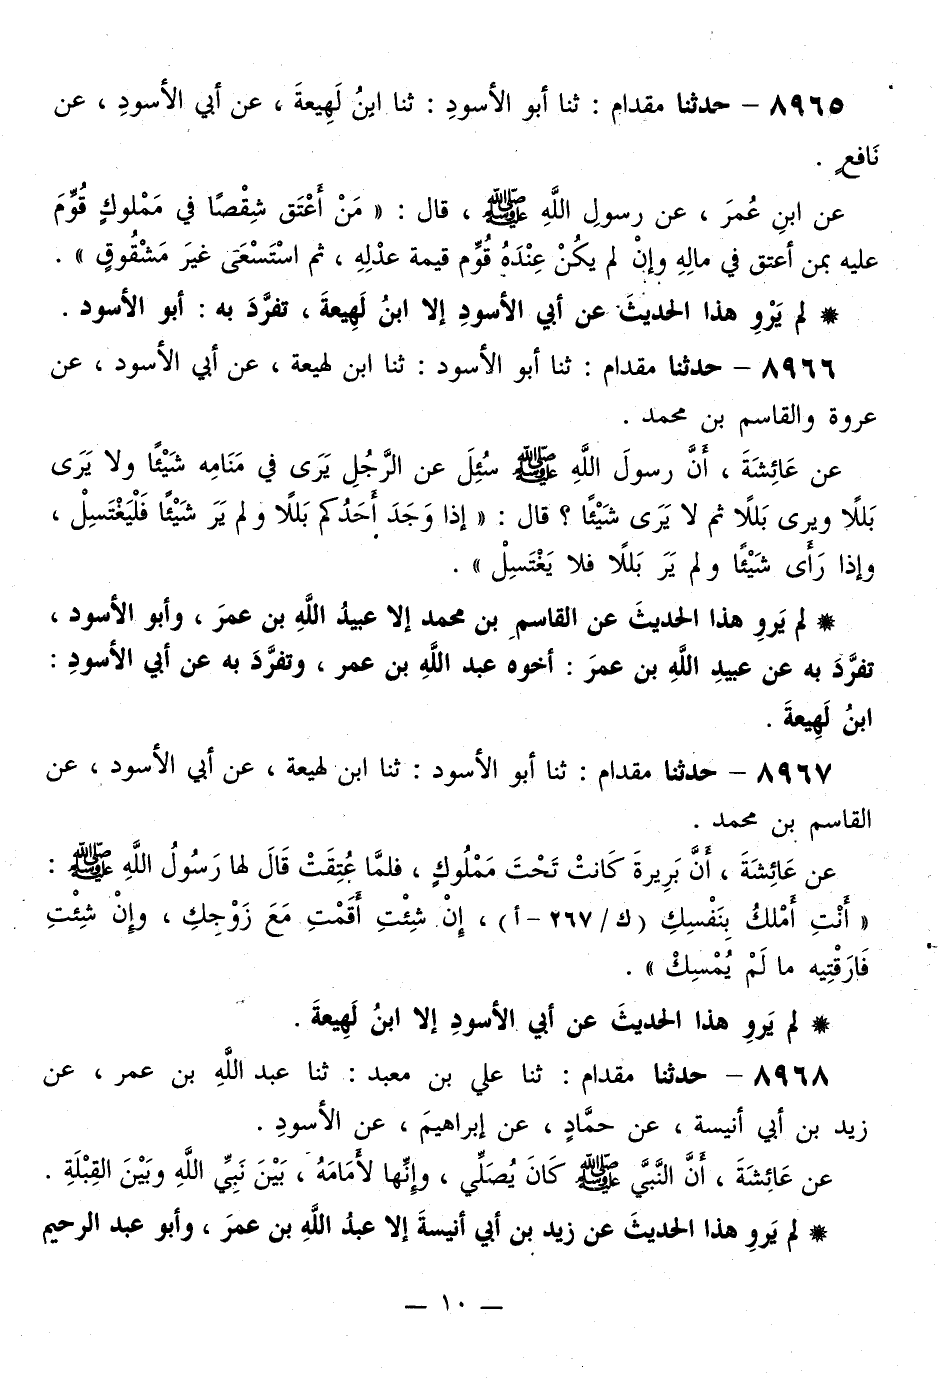 ٨٩٦٥ – حدثنا مقدام : ثنا أبو الأسودِ : ثنا ابنُ لَهِيعةَ ، عن أبي الأسودِ ، عن
نَافعٍ .
عن ابنِ عُمرَ ، عن رسولِ اللَّهِ ﷺ ، قال : « مَنْ أَعْتَق شِقْصًا في مَمْلوكٍ قُوِّمَ
عليه بمن أعتق في مالِهِ وإنْ لم يكُنْ عِنْدَهُ قُوِّم قيمة عدْلِهِ ، ثم اسْتَسْعَى غيرَ مَشْقُوقٍ » .
* لم يَرْوِ هذا الحديثَ عن أبي الأسودِ إلا ابنُ لَهِيعةَ ، تفرَّدَ به : أبو الأسود .
٨٩٦٦ – حدثنا مقدام : ثنا أبو الأسود : ثنا ابن لهيعة ، عن أبي الأسود ، عن
عروة والقاسم بن محمد .
عن عَائِشَةَ ، أَنَّ رسولَ اللَّهِ ﷺ سُئِلَ عن الرَّجُلِ يَرَى في مَنَامِه شَيْئًا ولا يَرَى
بَللًا ويرى بَللًا ثم لا يَرَى شَيْئًا ؟ قال : « إذا وَجَدَ أَحَدُكم بَللًا ولم يَرَ شَيْئًا فَلْيَغْتَسِلْ ،
وإذا رَأَى شَيْئًا ولم يَرَ بَللًا فلا يَغْتَسِلْ » .
* لم يَروِ هذا الحديثَ عن القاسمِ بن محمد إلا عبيدُ اللَّهِ بن عمرَ ، وأبو الأسود ،
تفرَّدَ به عن عبيدِ اللَّهِ بن عمرَ : أخوه عبد اللَّهِ بن عمر ، وتفرَّدَ به عن أبي الأسودِ :
ابنُ لَهِيعةَ .
٨٩٦٧ – حدثنا مقدام : ثنا أبو الأسود : ثنا ابن لهيعة ، عن أبي الأسود ، عن
القاسم بن محمد .
عن عَائِشَةَ ، أَنَّ بَرِيرةَ كَانتْ تَحْتَ مَمْلُوكٍ ، فلمَّا عُتِقَتْ قَالَ لها رَسُولُ اللَّهِ ﷺ :
« أَنْتِ أَمْلكُ بِنَفْسِكِ (ك/٢٦٧ –أ) ، إِنْ شِئْتِ أَقَمْتِ مَعَ زَوْجِكِ ، وإِنْ شِئْتِ
فَارَقْتِيه ما لَمْ يُمْسِكْ » .
* لم يَروِ هذا الحديثَ عن أبي الأسودِ إلا ابنُ لَهِيعةَ .
٨٩٦٨ – حدثنا مقدام : ثنا علي بن معبد : ثنا عبد اللَّهِ بن عمر ، عن
زيد بن أبي أنيسة ، عن حمَّادٍ ، عن إبراهيمَ ، عن الأسودِ .
عن عَائِشَةَ ، أَنَّ النَّبيَّ ﷺ كَانَ يُصَلِّي ، وإِنَّها لأَمَامَهُ ، بَيْنَ نَبِيِّ اللَّهِ وبَيْنَ القِبْلَةِ .
* لم يَروِ هذا الحديثَ عن زيد بن أبي أنيسةَ إلا عبدُ اللَّهِ بن عمرَ ، وأبو عبد الرحيم
— ١٠ —